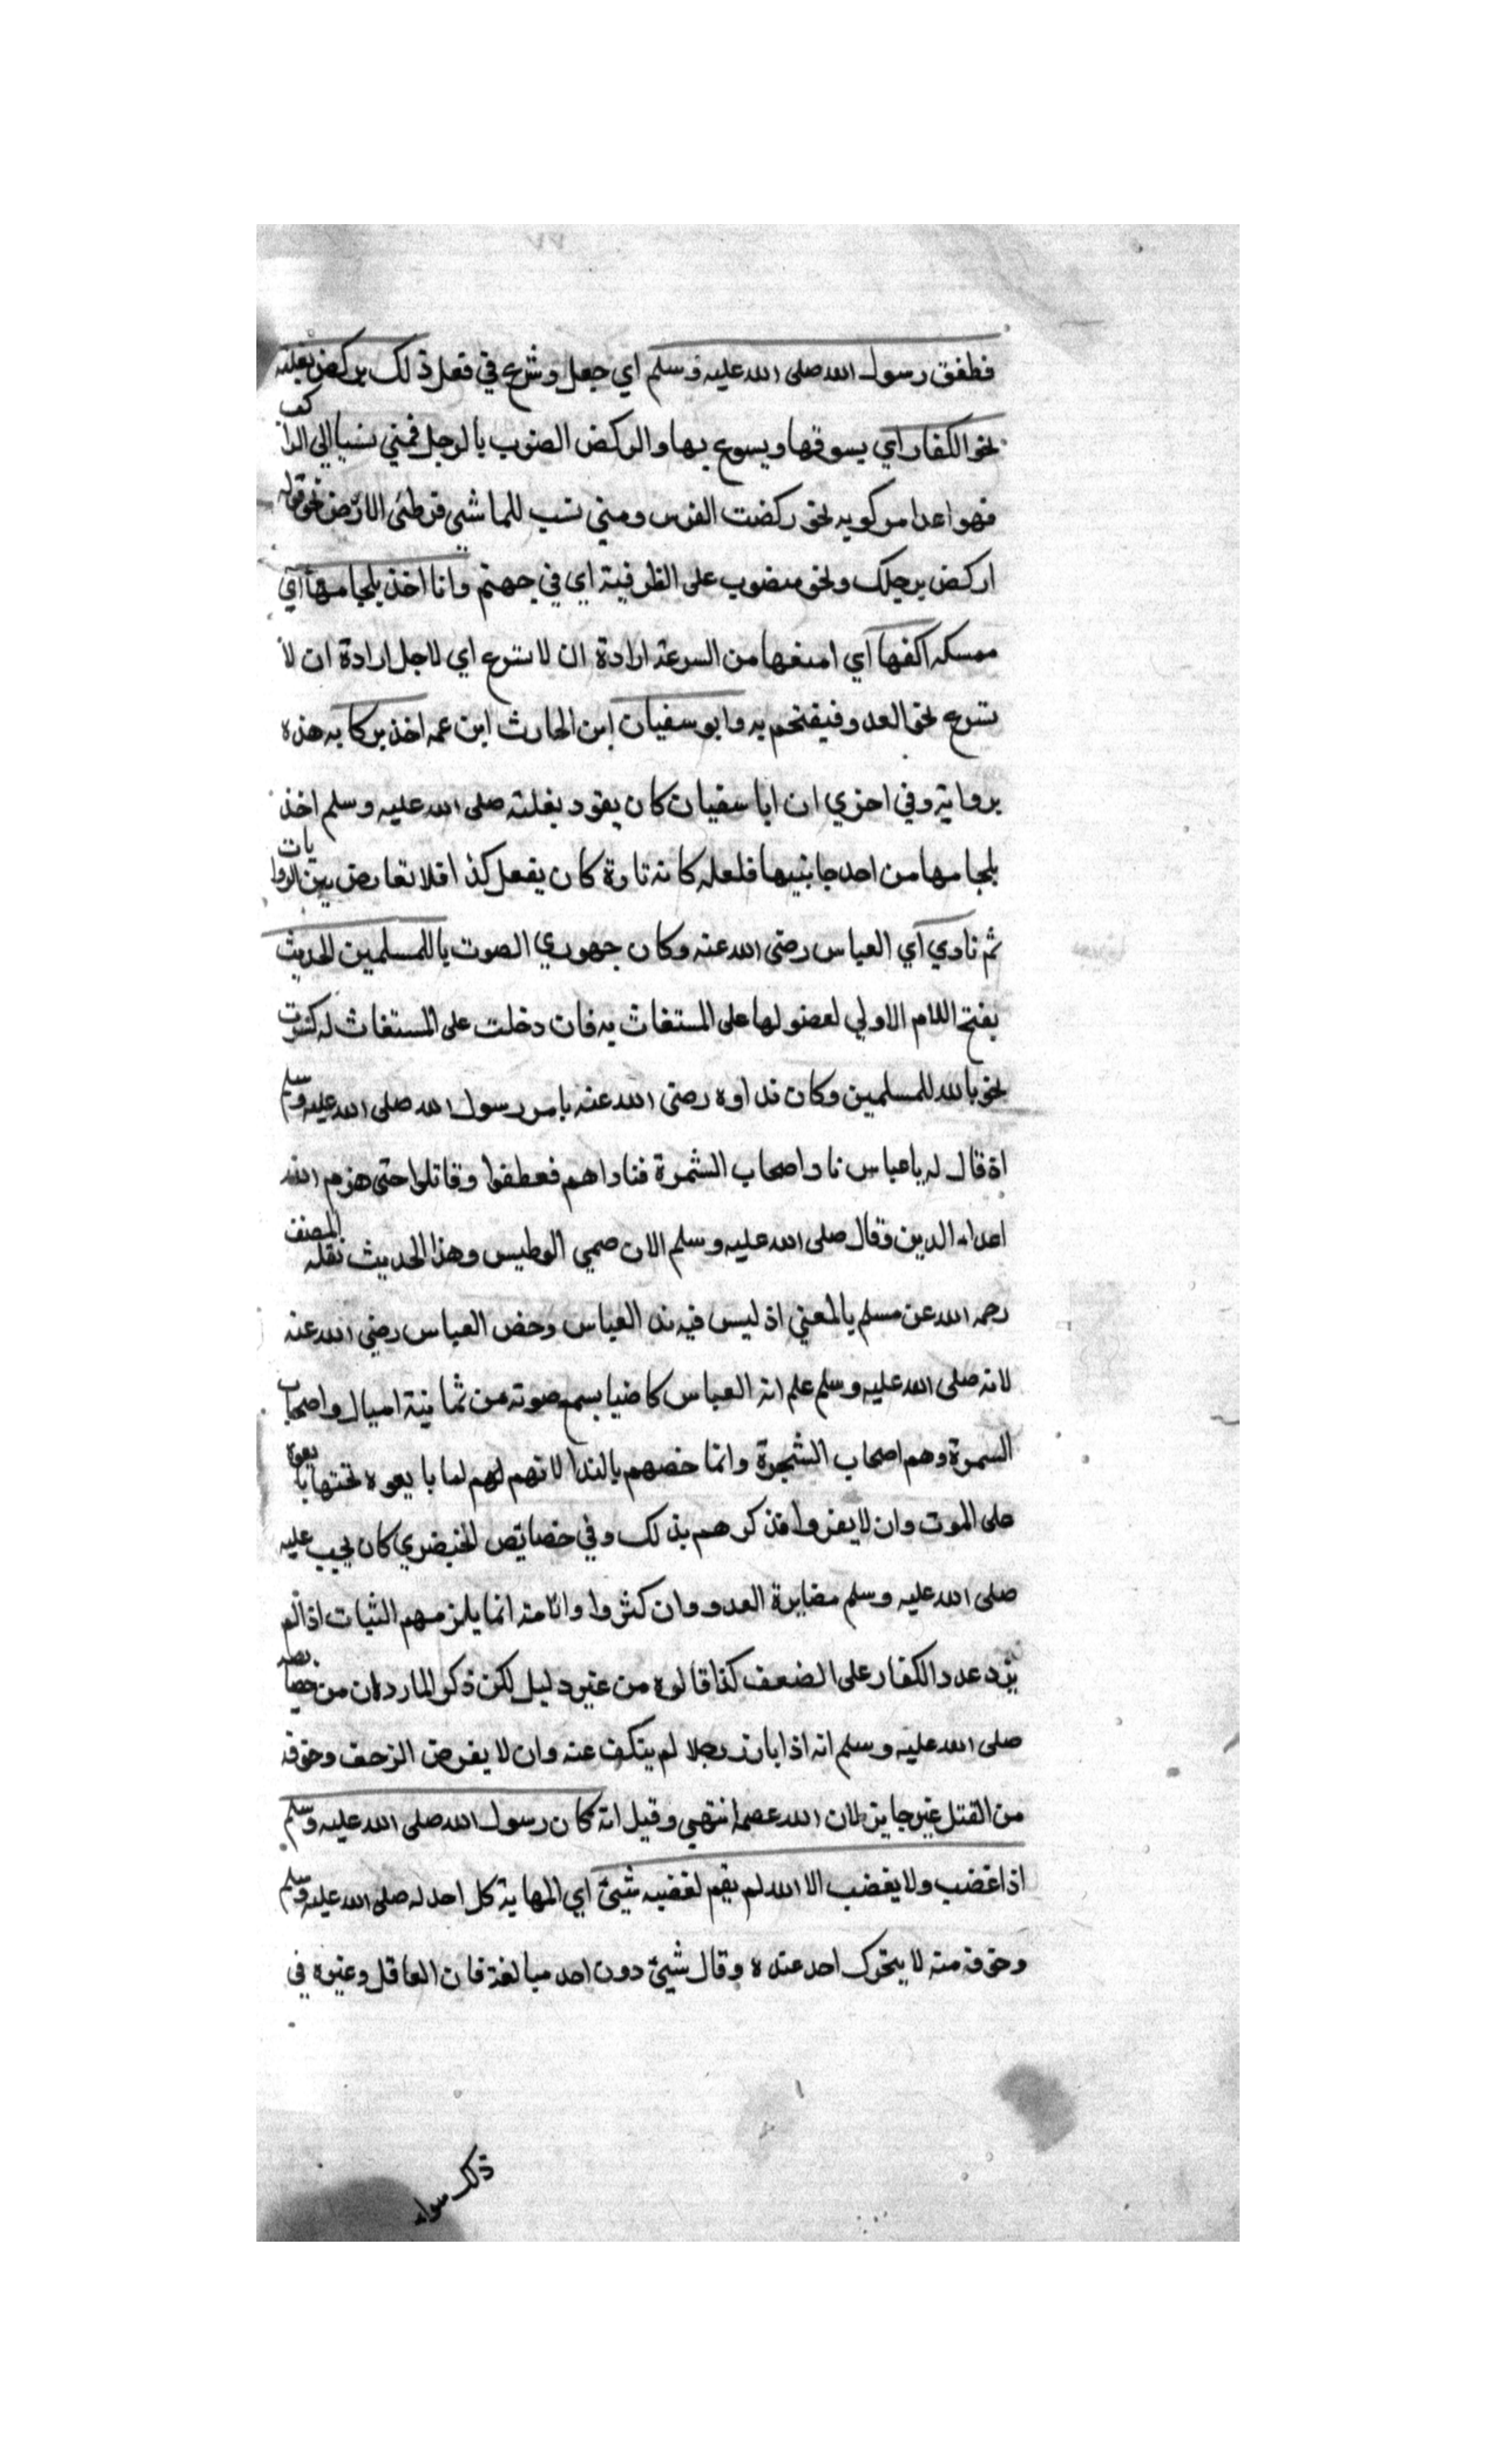 فطفق رسول الله صلى الله عليه وسلم اي جعل وشرع في فعل ذلك يركض بغلته
نحو الكفار اي يسوقها ويسوع بها والركض الضوب بالرجل فمتي نسبا الي الراكب
فهو اعدا مركوبه نحو ركضت الفرس ومتي نسب للماشي فوطئ الارض نحو قوله
اركض برجلك ونحو منصوب على الظرفية اي في جهتهم وانا اخذ بلجامها اي
ممسكه اكفها اي امنعها من السرعة ارادة ان لا تسرع اي لاجل ارادة ان لا
تسرع نحو العدو فيقتحم به وابو سفيان ابن الحارث ابن عمه اخذ بركابه هذه
رواية وفي اخري ان ابا سفيان كان يقود بغلته صلى الله عليه وسلم اخذ
بلجامها من احد جانبيها فلعله كانه تارة كان يفعل كذا فلا تعارض بين الروايات
ثم نادي اي العباس رضى الله عنه وكان جهوري الصوت ياللمسلمين الحديث
بفتح اللام الاولي لدخولها على المستغاث به فان دخلت على المستغاث له كسرت
نحو يالله للمسلمين وكان نداوه رضى الله عنه بامر رسول الله صلى الله عليه وسلم
اذ قال له يا عباس ناد اصحاب الشمرة فناداهم فعطفوا وقاتلوا حتى هزم الله
اعداء الدين وقال صلى الله عليه وسلم الان حمي الوطيس وهذا الحديث نقله المصنف
رحمه الله عن مسلم بالمعني اذ ليس فيه ندا العباس وخص العباس رضي الله عنه
لانه صلى الله عليه وسلم علم انه العباس كا ضيا بسمع صوته من ثمانية اميال واصحاب
السمرة وهم اصحاب الشجرة وانما خصهم بالندا لانهم لهم لما بايعوه تحتها بايعوه
على الموت وان لا يفروا فذكرهم بذلك وفي خصايص الخيضري كان يجب عليه
صلى الله عليه وسلم مصابرة العدو وان كثروا والامته انما يلزمهم الثبات اذا لم
يزد عدد الكفار على الضعف كذا قالوه من غير دليل لكن ذكر الماردان من خصايصه
صلى الله عليه وسلم انه اذا بارز رجلا لم ينكف عنه وان لا يفر من الزحف وخوفه
من القتل غير جايز لان الله عصمه انتهي وقيل انه كان رسول الله صلى الله عليه وسلم
اذا غضب ولا يغضب الا الله لم يقم لغضبه شيئ اي المهاية كل احد له صلى الله عليه وسلم
وخوفه منه لا يتحرك احد عنده وقال شيئ دون احد مبالغة فان العاقل وغيره في
ذلك سواء